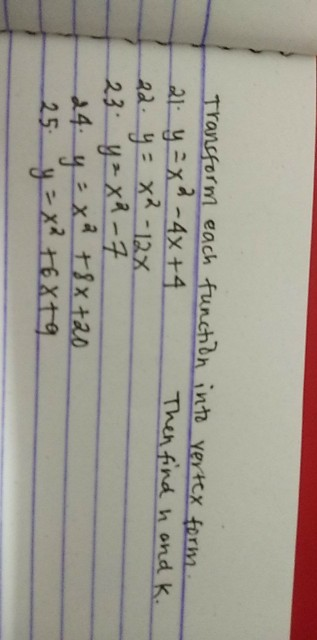 Transform each function into vertex form.
Then find h and k.
21. y = x² - 4x + 4
22. y = x² - 12x
23. y = x² - 7
24. y = x² + 8x + 20
25. y = x² + 6x + 9